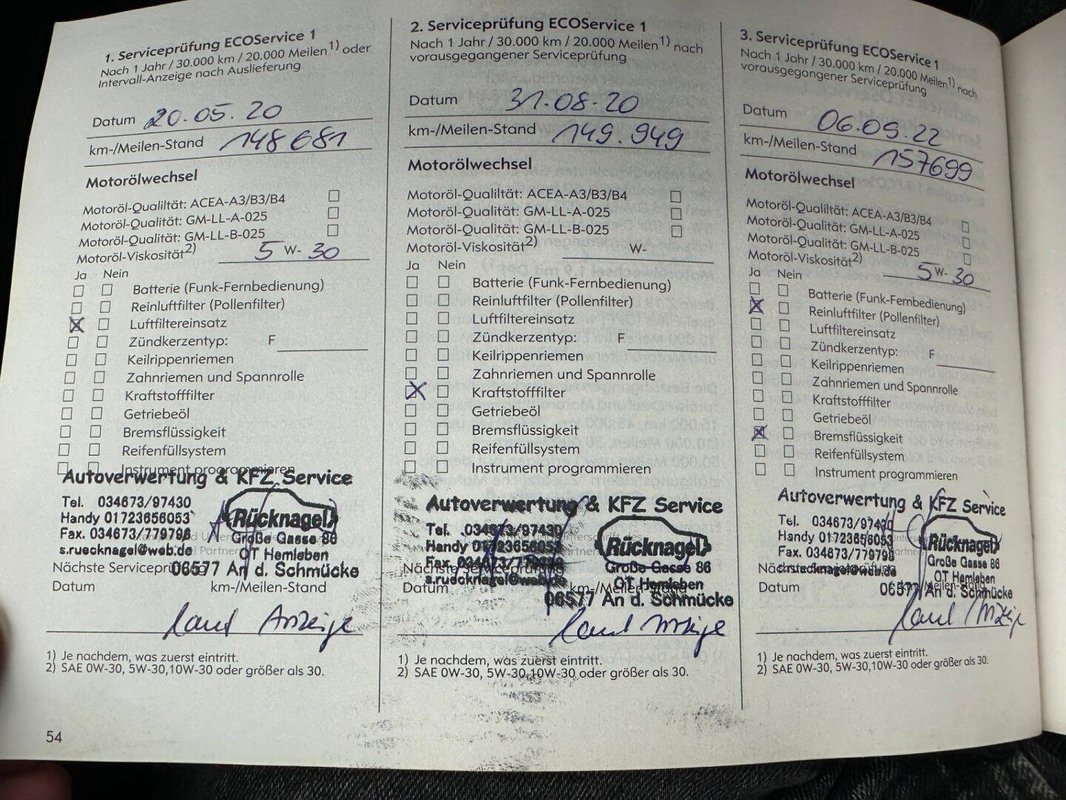 1. Serviceprüfung ECOService 1
Nach 1 Jahr / 30.000 km / 20.000 Meilen1) oder
Intervall-Anzeige nach Auslieferung
Datum 20.05.20
km-/Meilen-Stand 148681
Motorölwechsel
Motoröl-Qualilität: ACEA-A3/B3/B4
Motoröl-Qualität: GM-LL-A-025
Motoröl-Qualität: GM-LL-B-025
Motoröl-Viskosität2) 5 W- 30
Ja Nein
Batterie (Funk-Fernbedienung)
Reinluftfilter (Pollenfilter)
Luftfiltereinsatz
Zündkerzentyp: F
Keilrippenriemen
Zahnriemen und Spannrolle
Kraftstofffilter
Getriebeöl
Bremsflüssigkeit
Reifenfüllsystem
Instrument programmieren
Autoverwertung & KFZ Service
Tel. 034673/97430
Handy 01723656053
Fax. 034673/779798
s.ruecknagel@web.de
Rücknagel
Große Gasse 86
OT Hemleben
06577 An d. Schmücke
Nächste Serviceprüfung
Datum km-/Meilen-Stand
laut Anzeige
1) Je nachdem, was zuerst eintritt.
2) SAE 0W-30, 5W-30,10W-30 oder größer als 30.
54
2. Serviceprüfung ECOService 1
Nach 1 Jahr / 30.000 km / 20.000 Meilen1) nach
vorausgegangener Serviceprüfung
Datum 31.08.20
km-/Meilen-Stand 149.949
Motorölwechsel
Motoröl-Qualilität: ACEA-A3/B3/B4
Motoröl-Qualität: GM-LL-A-025
Motoröl-Qualität: GM-LL-B-025
Motoröl-Viskosität2) W-
Ja Nein
Batterie (Funk-Fernbedienung)
Reinluftfilter (Pollenfilter)
Luftfiltereinsatz
Zündkerzentyp: F
Keilrippenriemen
Zahnriemen und Spannrolle
Kraftstofffilter
Getriebeöl
Bremsflüssigkeit
Reifenfüllsystem
Instrument programmieren
Autoverwertung & KFZ Service
Tel. 034673/97430
Handy 01723656053
Fax. 034673/779798
s.ruecknagel@web.de
Rücknagel
Große Gasse 86
OT Hemleben
06577 An d. Schmücke
Nächste Serviceprüfung
Datum km-/Meilen-Stand
laut Anzeige
1) Je nachdem, was zuerst eintritt.
2) SAE 0W-30, 5W-30,10W-30 oder größer als 30.
3. Serviceprüfung ECOService 1
Nach 1 Jahr / 30.000 km / 20.000 Meilen1) nach
vorausgegangener Serviceprüfung
Datum 06.09.22
km-/Meilen-Stand 157699
Motorölwechsel
Motoröl-Qualilität: ACEA-A3/B3/B4
Motoröl-Qualität: GM-LL-A-025
Motoröl-Qualität: GM-LL-B-025
Motoröl-Viskosität2) 5 W- 30
Ja Nein
Batterie (Funk-Fernbedienung)
Reinluftfilter (Pollenfilter)
Luftfiltereinsatz
Zündkerzentyp: F
Keilrippenriemen
Zahnriemen und Spannrolle
Kraftstofffilter
Getriebeöl
Bremsflüssigkeit
Reifenfüllsystem
Instrument programmieren
Autoverwertung & KFZ Service
Tel. 034673/97430
Handy 01723656053
Fax. 034673/779798
s.ruecknagel@web.de
Rücknagel
Große Gasse 86
OT Hemleben
06577 An d. Schmücke
Datum
laut Anzeige
1) Je nachdem, was zuerst eintritt.
2) SAE 0W-30, 5W-30,10W-30 oder größer als 30.